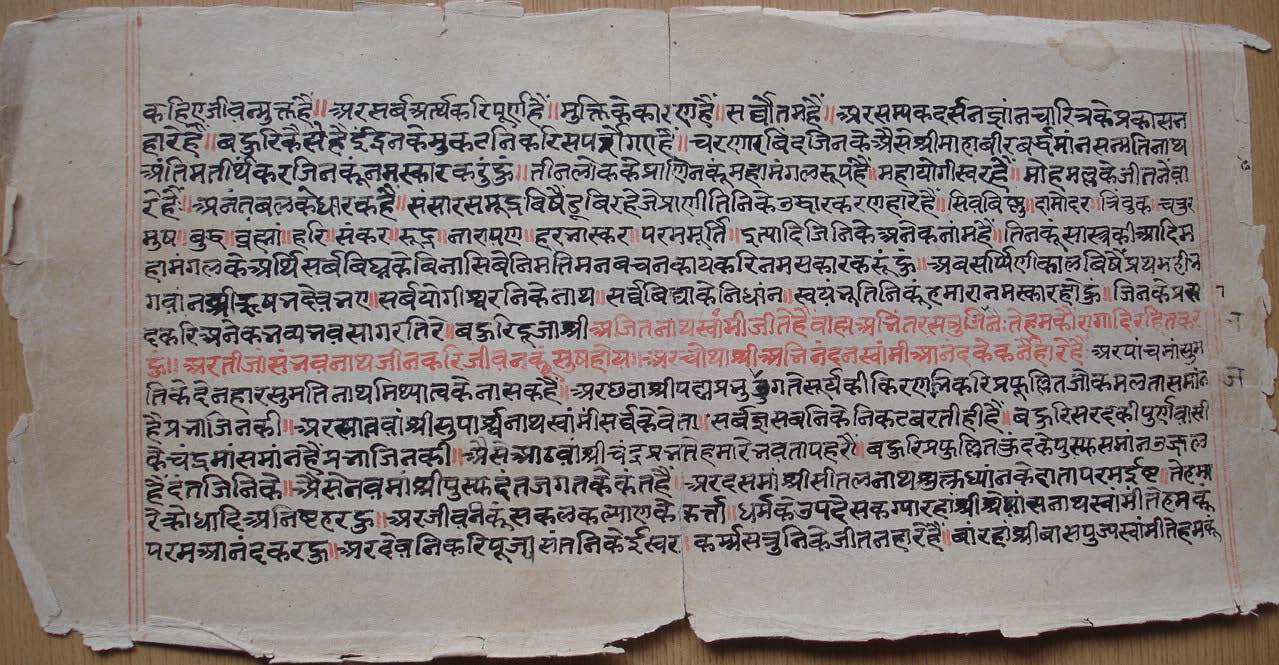 कहिए जीवन्मुक्त हैं॥ अर सर्ब अर्त्थ करि पूर्ण हैं॥ मुक्ति के कारण हैं॥ सर्व्वोतम हैं॥ अर सम्यक दर्सन ज्ञांन चारित्र के प्रकासन
हारे हैं॥ बहुरि कैसे है ईंद्रन के मुकटनि करि सपर्से गए हैं॥ चरणारविंद जिनके अैसे श्री माहाबीर बर्द्धमांन सन्मतिनाथ
अंतिम तीर्थंकर जिनकूं नमस्कार करुं हुं॥ तीन लोक के प्राणिनकूं महा मंगल रूप हैं॥ महा योगीस्वर हैं॥ मोह मल्ल के जीतनें वा
रे हैं॥ अनंत बल के धारक हैं॥ संसार समुद्र बिषैं डूबि रहे जे प्राणी तिनिके उद्धार करणहारे हैं॥ सिव बिष्णु दामोदर त्रिंबुक चतुर
मुष बुद्ध ब्रह्मा॥ हरि॥ संकर॥ रूद्र॥ नारायण॥ हर भास्कर॥ परम मूर्ति॥ इत्यादि जिनिके अनेक नांम हैं॥ तिनकूं सास्त्र की आदि म
हा मंगल के अर्थि सर्ब बिघ्न के बिनासिबे निमति मन बचन काय करि नमसकार करूं हुं॥ अवसर्प्पिणी काल बिषैं प्रथम ही भ
गवांन श्री ऋषभदेव भए॥ सर्ब योगीश्वरनि के नाथ॥ सर्व्व बिद्या के निधांन॥ स्वयंभू तिनिकूं हमारा नमस्कार होहु॥ जिनके प्रसा
द करि अनेक भव्य भवसागर तिरे॥ बहुरि दूजा श्री अजितनाथ स्वांमी जीते है बाह्य अभिंतर सत्रु जिनें ते हमकौं रागादि रहित कर
हु॥ अर तीजा संभवनाथ जीन करि जीवनकूं सुष होय॥ अर चौथा श्री अभिनंदन स्वांमी आनंद के करनैंहारे है अर पांचमां सुम
ति के देनहार सुमतिनाथ मिथ्यात्व के नासक हैं॥ अर छठा श्री पद्मप्रभु उगते सूर्य की किरणनि करि प्रफूल्लित जो कमल ता समांन
है प्रभा जिनकी॥ अर सातवां श्री सुपार्श्वनाथ स्वांमी सर्व्व के वेता॥ सर्बज्ञ सबनि के निकट बरती ही हैं॥ बहुरि सरद की पुर्णवासी
के चंद्रमां समांन हैं प्रभा जिनकी॥ अैसे आठवां श्री चंद्रप्रभ ते हमारे भव ताप हरो॥ बहुरि प्रफुल्लित कुंद के पुस्फ समांन उज्जल
हैं दंत जिनिके॥ अैसे नवमां श्री पुस्फदंत जगत के कंत हैं॥ अर दसमां श्री सीतलनाथ सुक्लध्यांन के दाता परम ईष्ट॥ ते हमा
रे क्रोधादि अनिष्ट हरहु॥ अर जीवनकूं सकल कल्याण के कर्त्ता॥ धर्म के उपदेसक ग्यारहां श्री श्रेयांसनाथ स्वामी ते हमकूं
परम आनंद करहु॥ अर देवनि करि पूज्य संतनि के ईस्वर कर्म्म सत्रुनि के जीतनहारे हैं॥ बांरहां श्री बासपुज्य स्वांमी ते हमकूं